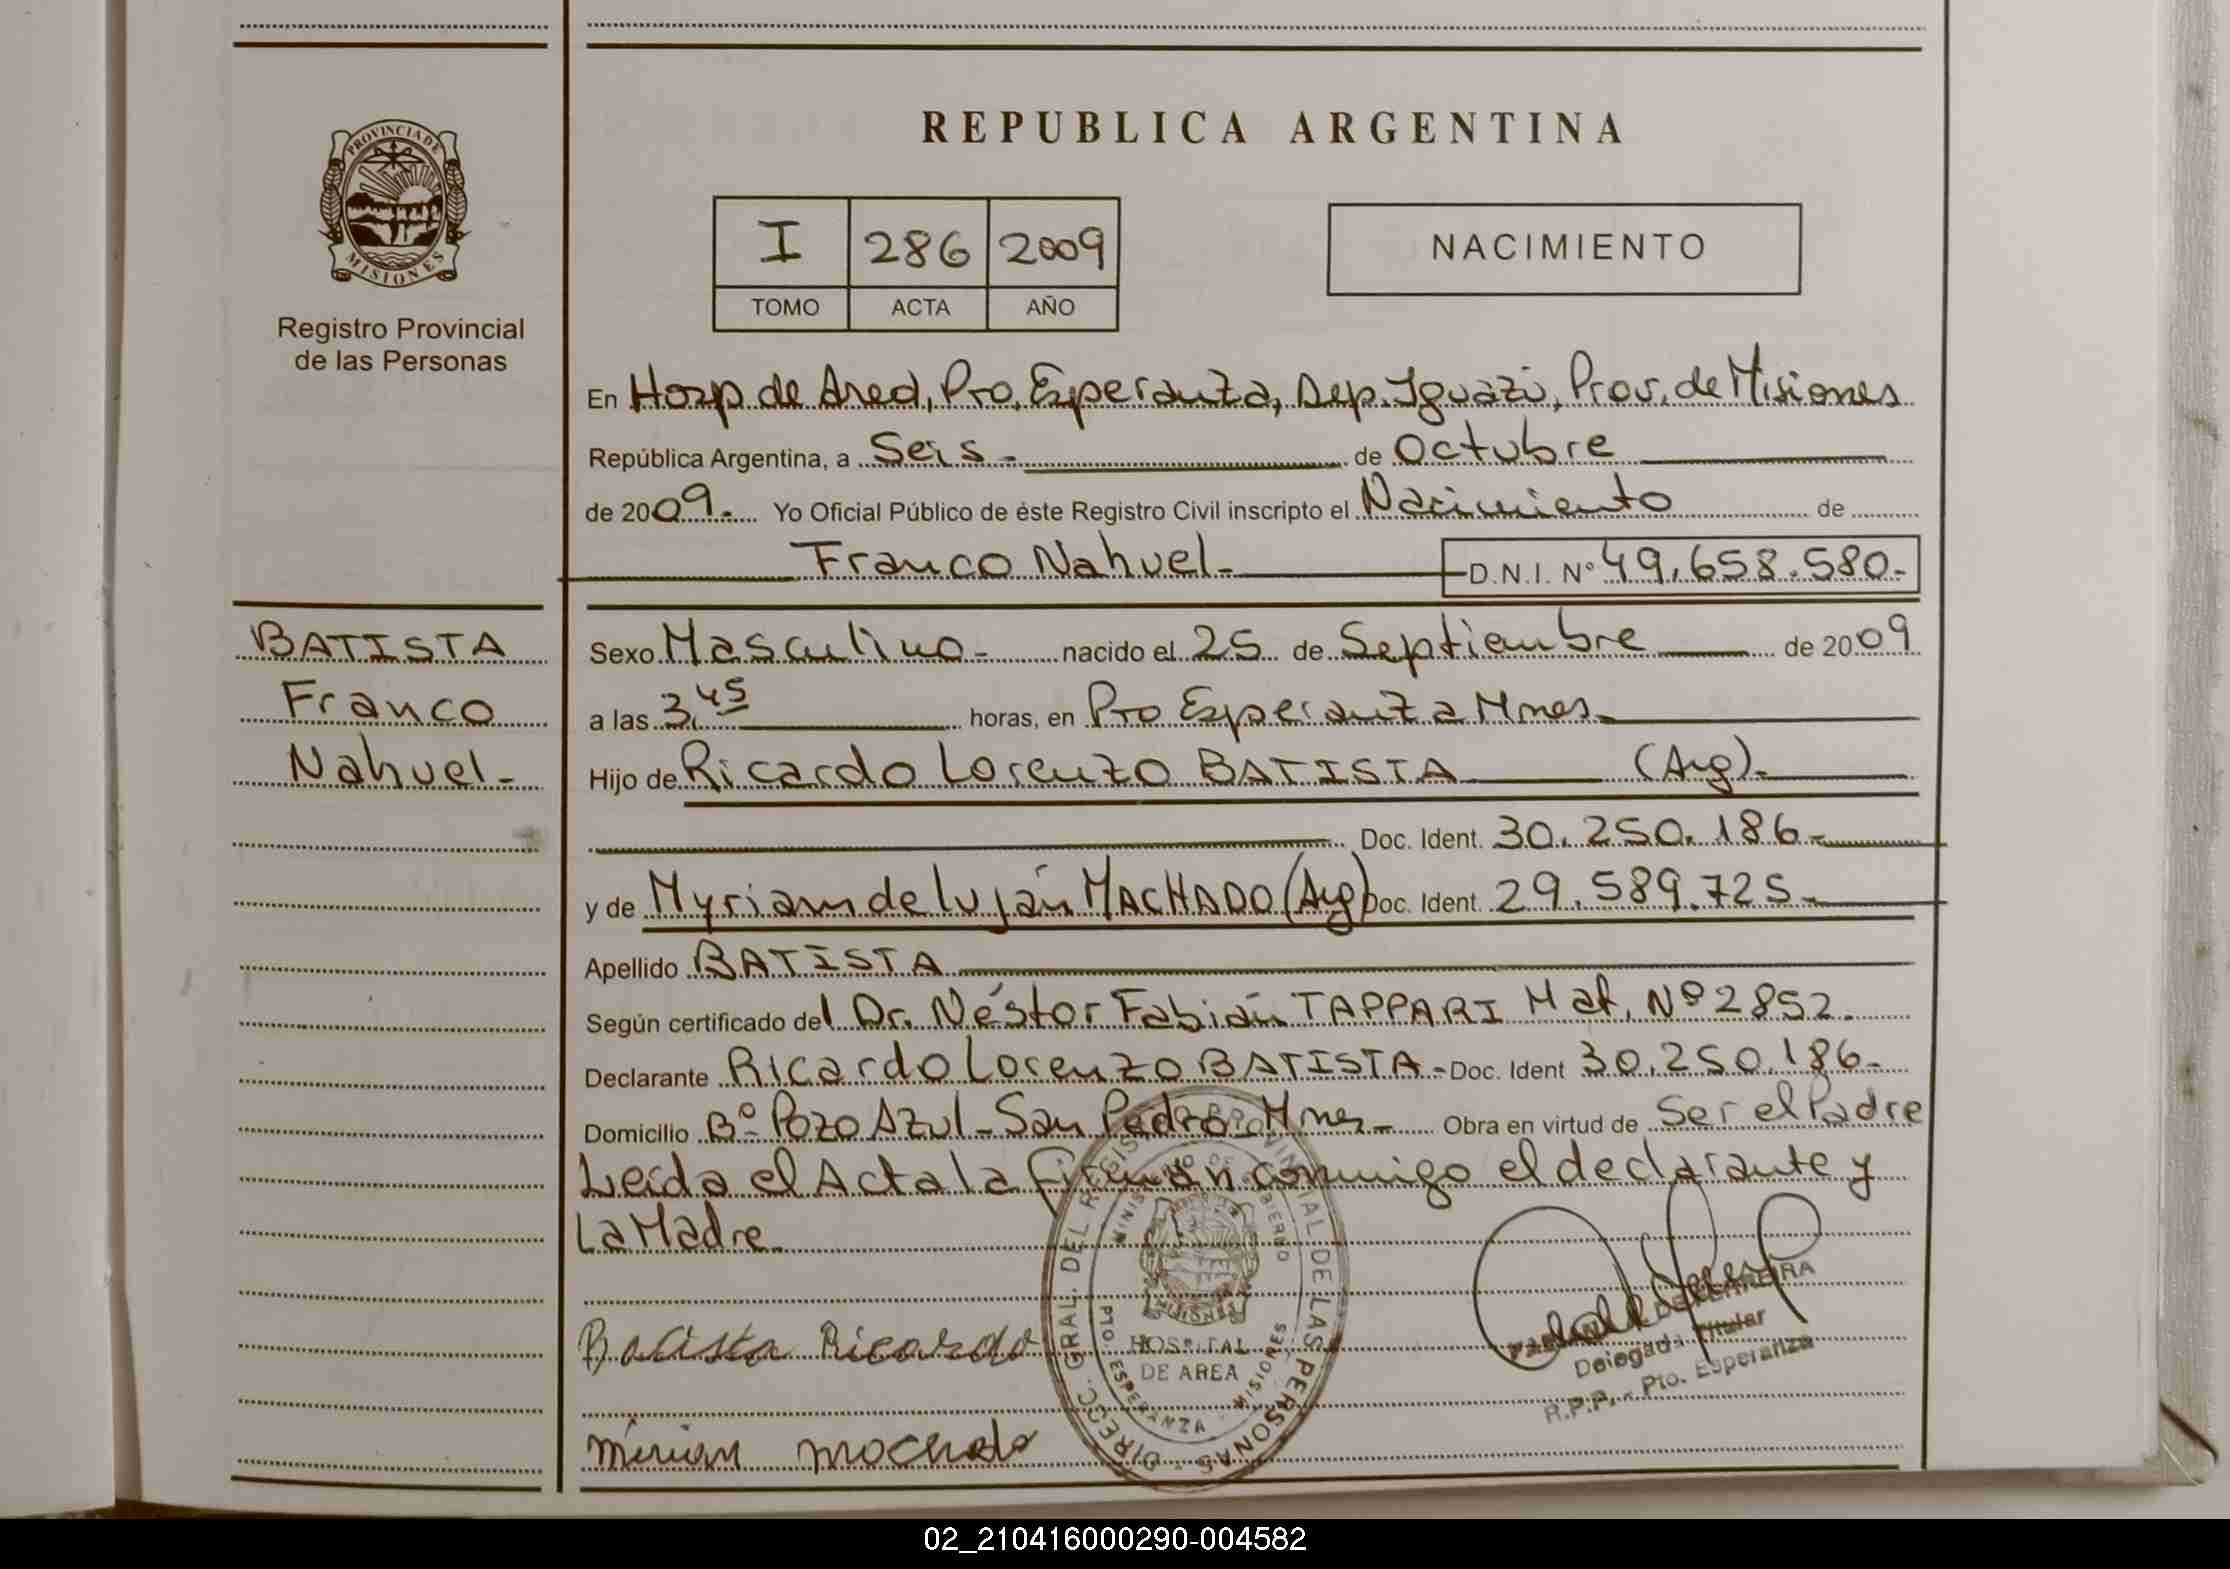 REPUBLICA ARGENTINA
PROVINCIA DE
MISIONES
Registro Provincial
de las Personas
I 286 2009
TOMO ACTA AÑO
NACIMIENTO
En Hosp de Area, Pto. Esperanza, Dep. Iguazú, Prov. de Misiones
República Argentina, a Seis - de Octubre
de 2009.- Yo Oficial Público de éste Registro Civil inscripto el Nacimiento de
Franco Nahuel.- D.N.I. N° 49.658.580-
BATISTA
Franco
Nahuel-
Sexo Masculino- nacido el 25 de Septiembre de 2009
a las 3,45 horas, en Pto Esperanza Mnes-
Hijo de Ricardo Lorenzo BATISTA (Arg)-
Doc. Ident. 30.250.186-
y de Myriam de Luján MACHADO (Arg) Doc. Ident. 29.589.725-
Apellido BATISTA
Según certificado del Dr. Néstor Fabián TAPPARI Mat. Nº 2852.
Declarante Ricardo Lorenzo BATISTA- Doc. Ident 30.250.186-
Domicilio Bº Pozo Azul - San Pedro - Mnes - Obra en virtud de Ser el Padre
Leída el Acta la firman conmigo el declarante y
La Madre.
Batista Ricardo
Mirian Machado
DIRECC. GRAL. DEL REGISTRO PROVINCIAL DE LAS PERSONAS
MINISTERIO DE GOBIERNO
MISIONES
HOSPITAL
DE AREA
PTO. ESPERANZA - MISIONES
DE FERREIRA
Delegada Titular
R.P.P. - Pto. Esperanza
02_210416000290-004582